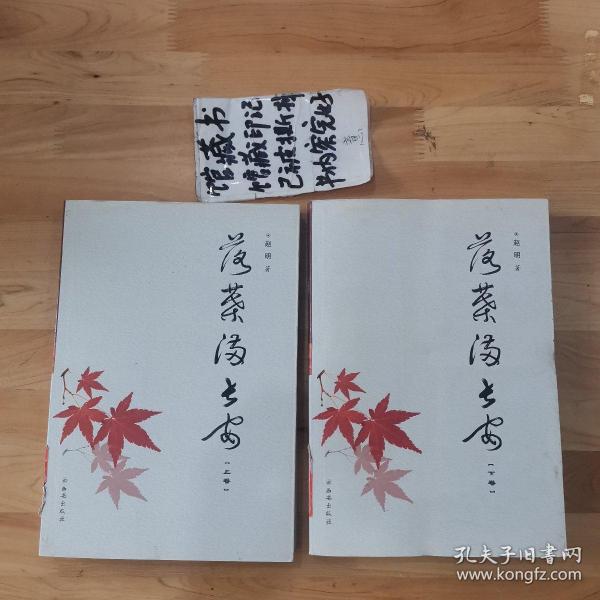 馆藏书
馆藏印记
已被撕掉
书内容完好
赵明 著
落叶满长安
【上卷】
西安出版社
赵明 著
落叶满长安
【下卷】
西安出版社
孔夫子旧书网
www.kongfz.com